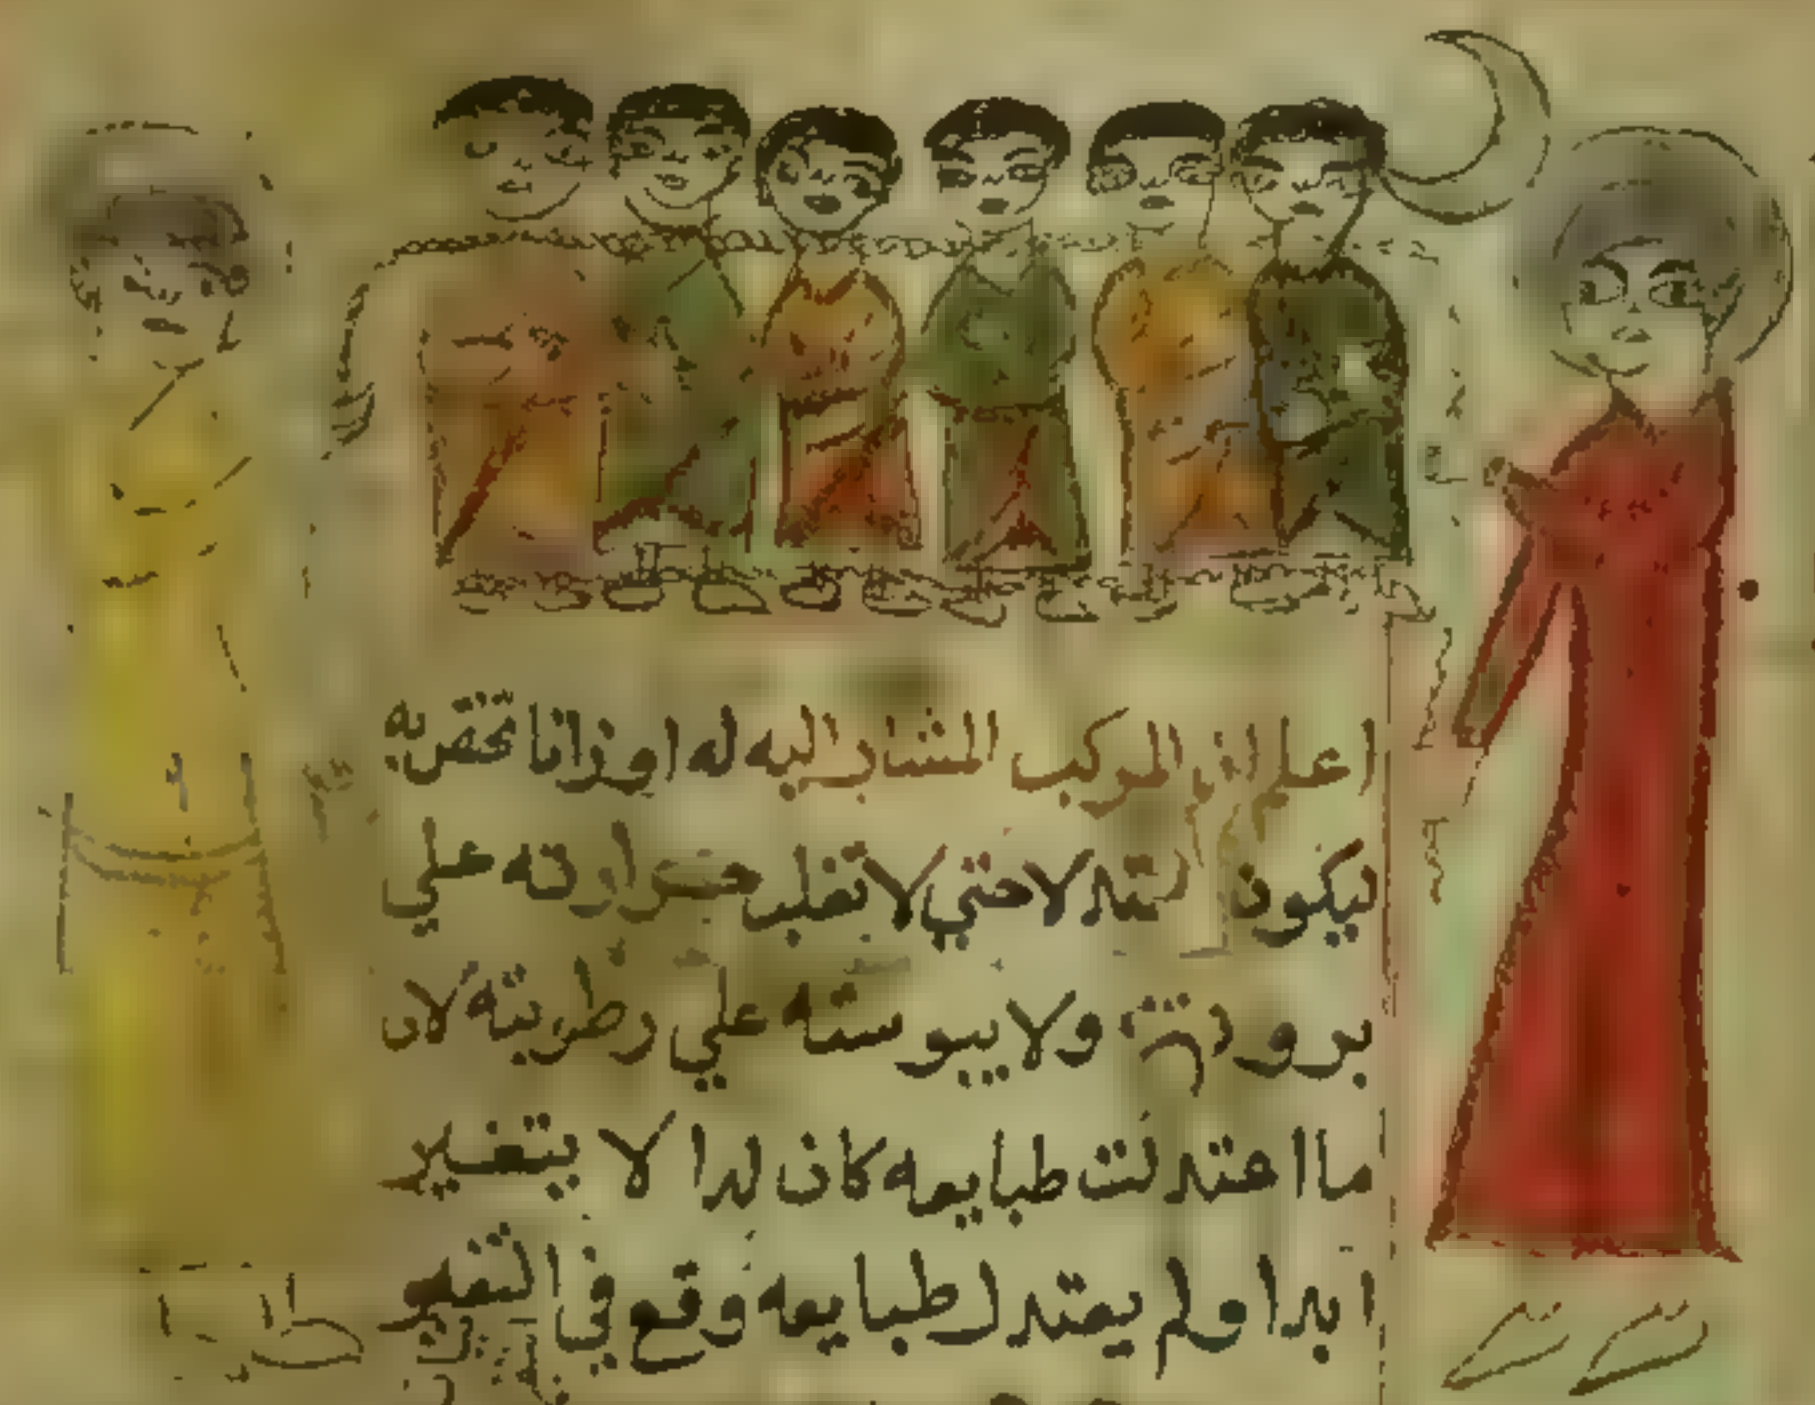 اعلم ان المركب المشار اليه له اوزانا تختص به
ليكون معتدلا حتي لا تغلب حرارته علي
برودته ولا يبوسته علي رطوبته لان
ما اعتدلت طبايعه كان لدا لا يتغير
ابدا ولم يعتدل طبايعه وقع في التغير